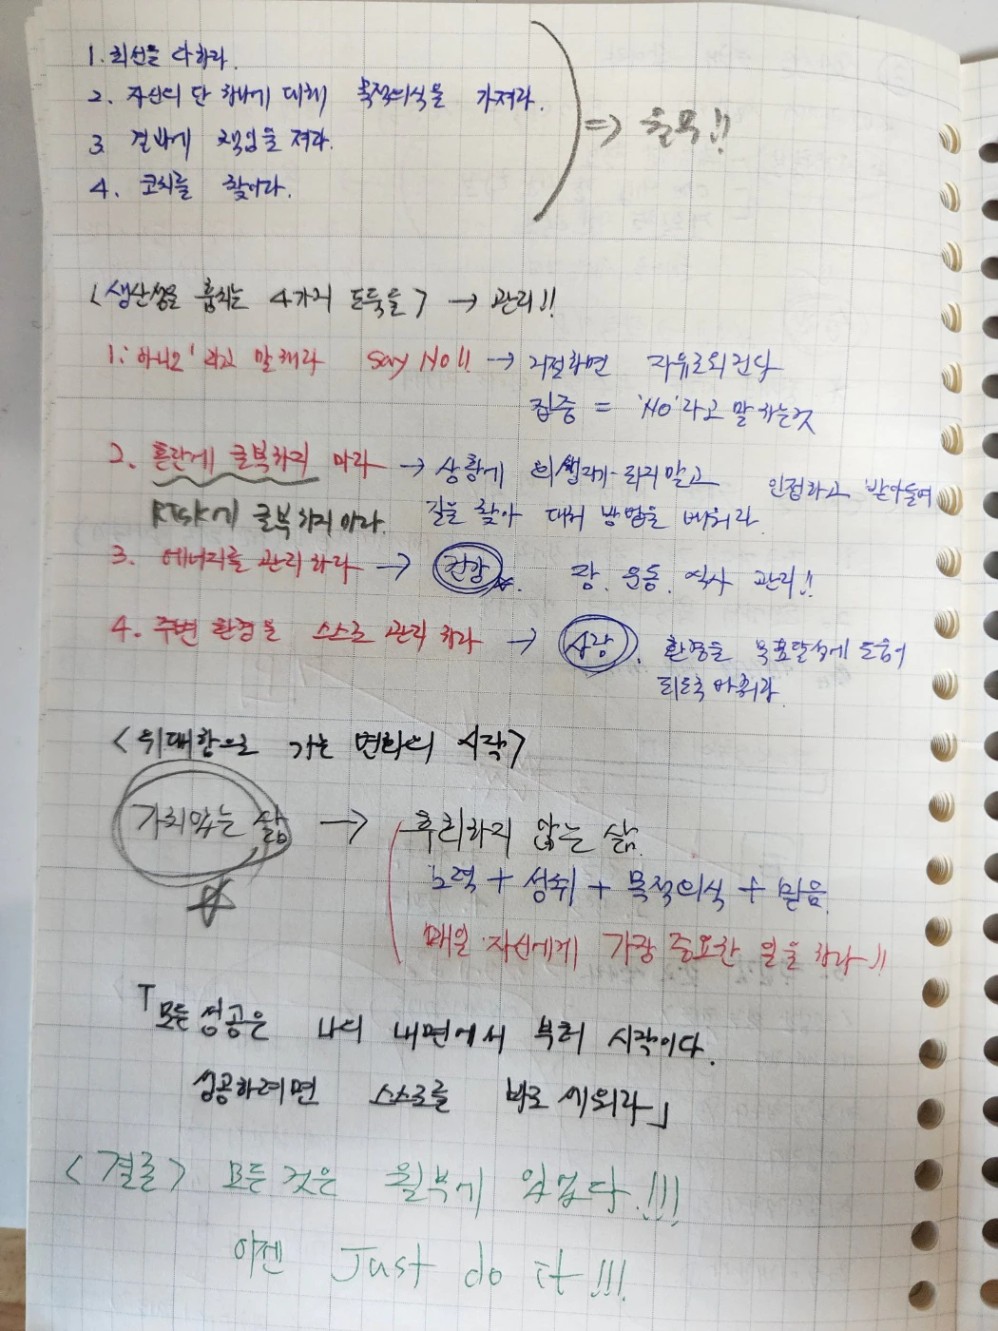 1. 최선을 다하라.
2. 자신의 단 하나에 대해 목적의식을 가져라.
3. 결과에 책임을 져라.
4. 코치를 찾아라.
⇒ 월부!!
<생산성을 훔치는 4가지 도둑들> → 관리!!
1. '아니오' 라고 말해라 Say No!! → 거절하면 자유로워진다
집중 = 'No'라고 말하는것
2. 혼란에 굴복하지 마라 → 상황에 희생자가 되지말고 인정하고 받아들여
Risk에 굴복하지마라. 길을 찾아 대처 방법을 배워라.
3. 에너지를 관리하라 → 건강. 잠. 운동. 식사 관리!!
4. 주변 환경을 스스로 관리하라 → 사람. 환경을 목표달성에 도움
되도록 바꿔라
<위대함으로 가는 변화의 시작>
가치있는 삶 → 후회하지 않는 삶.
노력 + 성취 + 목적의식 + 믿음
매일 자신에게 가장 중요한 일을 하라!!
「모든 성공은 나의 내면에서 부터 시작이다.
성공하려면 스스로를 바로 세워라」
<결론> 모든 것은 월부에 있었다.!!!
이젠 Just do it!!!